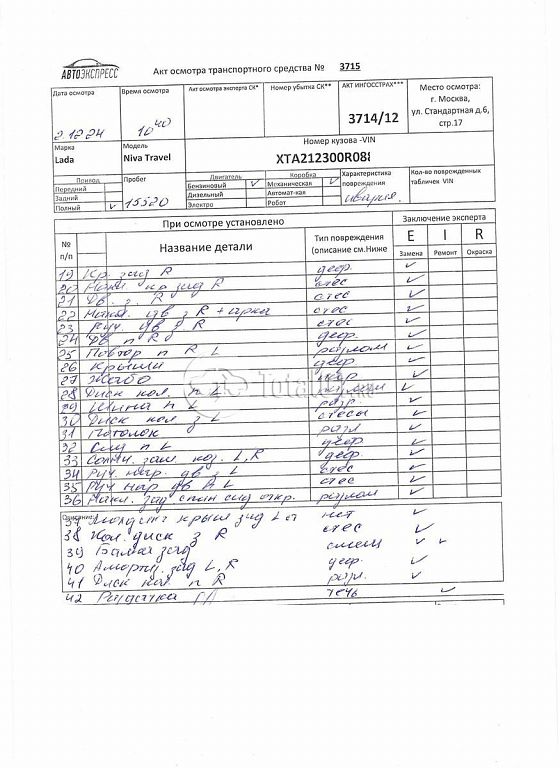 АВТОЭКСПРЕСС
Акт осмотра транспортного средства № 3715
Дата осмотра
2.12.24
Время осмотра
10 40
Акт осмотра эксперта СК*
Номер убытка СК**
АКТ ИНГОССТРАХ***
3714/12
Место осмотра:
г. Москва,
ул. Стандартная д.6,
стр.17
Марка
Lada
Модель
Niva Travel
Номер кузова -VIN
XTA212300R088
Привод
Передний
Задний
Полный ✓
Пробег
15520
Двигатель
Бензиновый ✓
Дизельный
Электро
Коробка
Механическая ✓
Автомат-кая
Робот
Характеристика
повреждения
авария
Кол-во поврежденных
табличек VIN
При осмотре установлено
Заключение эксперта
№
п/п
Название детали
Тип повреждения
(описание см.Ниже
E I R
Замена Ремонт Окраска
19 Кр. зад R деф. ✓
20 Накл кр зад R стес ✓
21 Дв. з. R стес ✓
22 Накл дв з R + арка стес ✓
23 Руч. дв з R стес ✓
24 Дв п R деф. ✓
25 Повтор п R L разлом ✓
26 Крыши деф ✓
27 Жабо ✓
28 Диск кол. п L разлом ✓
29 Шина п L разр. ✓
30 Диск кол з L стесы ✓
31 Потолок разл ✓
32 п L деф ✓
33 L, R деф. ✓
34 Руч нар. дв з L стес ✓
35 Руч нар дв L стес ✓
36 Накл. зад спин сид откр. разлом ✓
Описание:
37 Молдинг крыл зад L нет ✓
38 Кол. диск з R стес ✓
39 Балка зад смещ ✓ ✓
40 Аморт. зад L, R деф. ✓
41 Диск кол п R разл. ✓
42 Раздатка течь ✓
Total